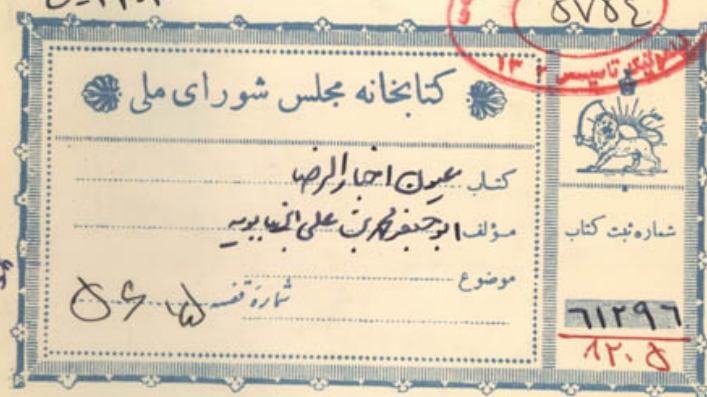 ۵۷۵٤
تاسیس ۱۳
کتابخانه مجلس شورای ملی
کتاب عیون اخبار الرضا
مؤلف ابو جعفر محمد بن علی ابن بابویه
موضوع
شمارهٔ قفسه
شماره ثبت کتاب
۶۱۲۹۶
۸۲۰۵